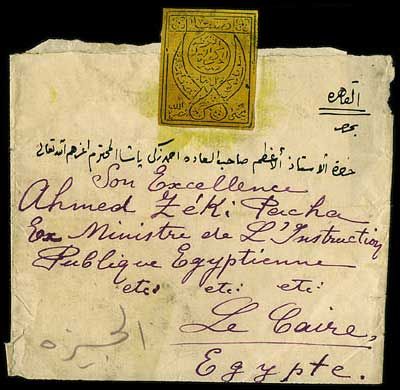 القاهرة
بمصر
حضرة الاستاذ الأعظم صاحب السعاده احمد زكى باشا المحترم اعزهم الله تعالى
Son Excellence
Ahmed Zéki Pacha
Ex Ministre de L'Instruction
Publique Egyptienne
etc: etc: etc:
Le Caire,
Egypte.
الجيزه